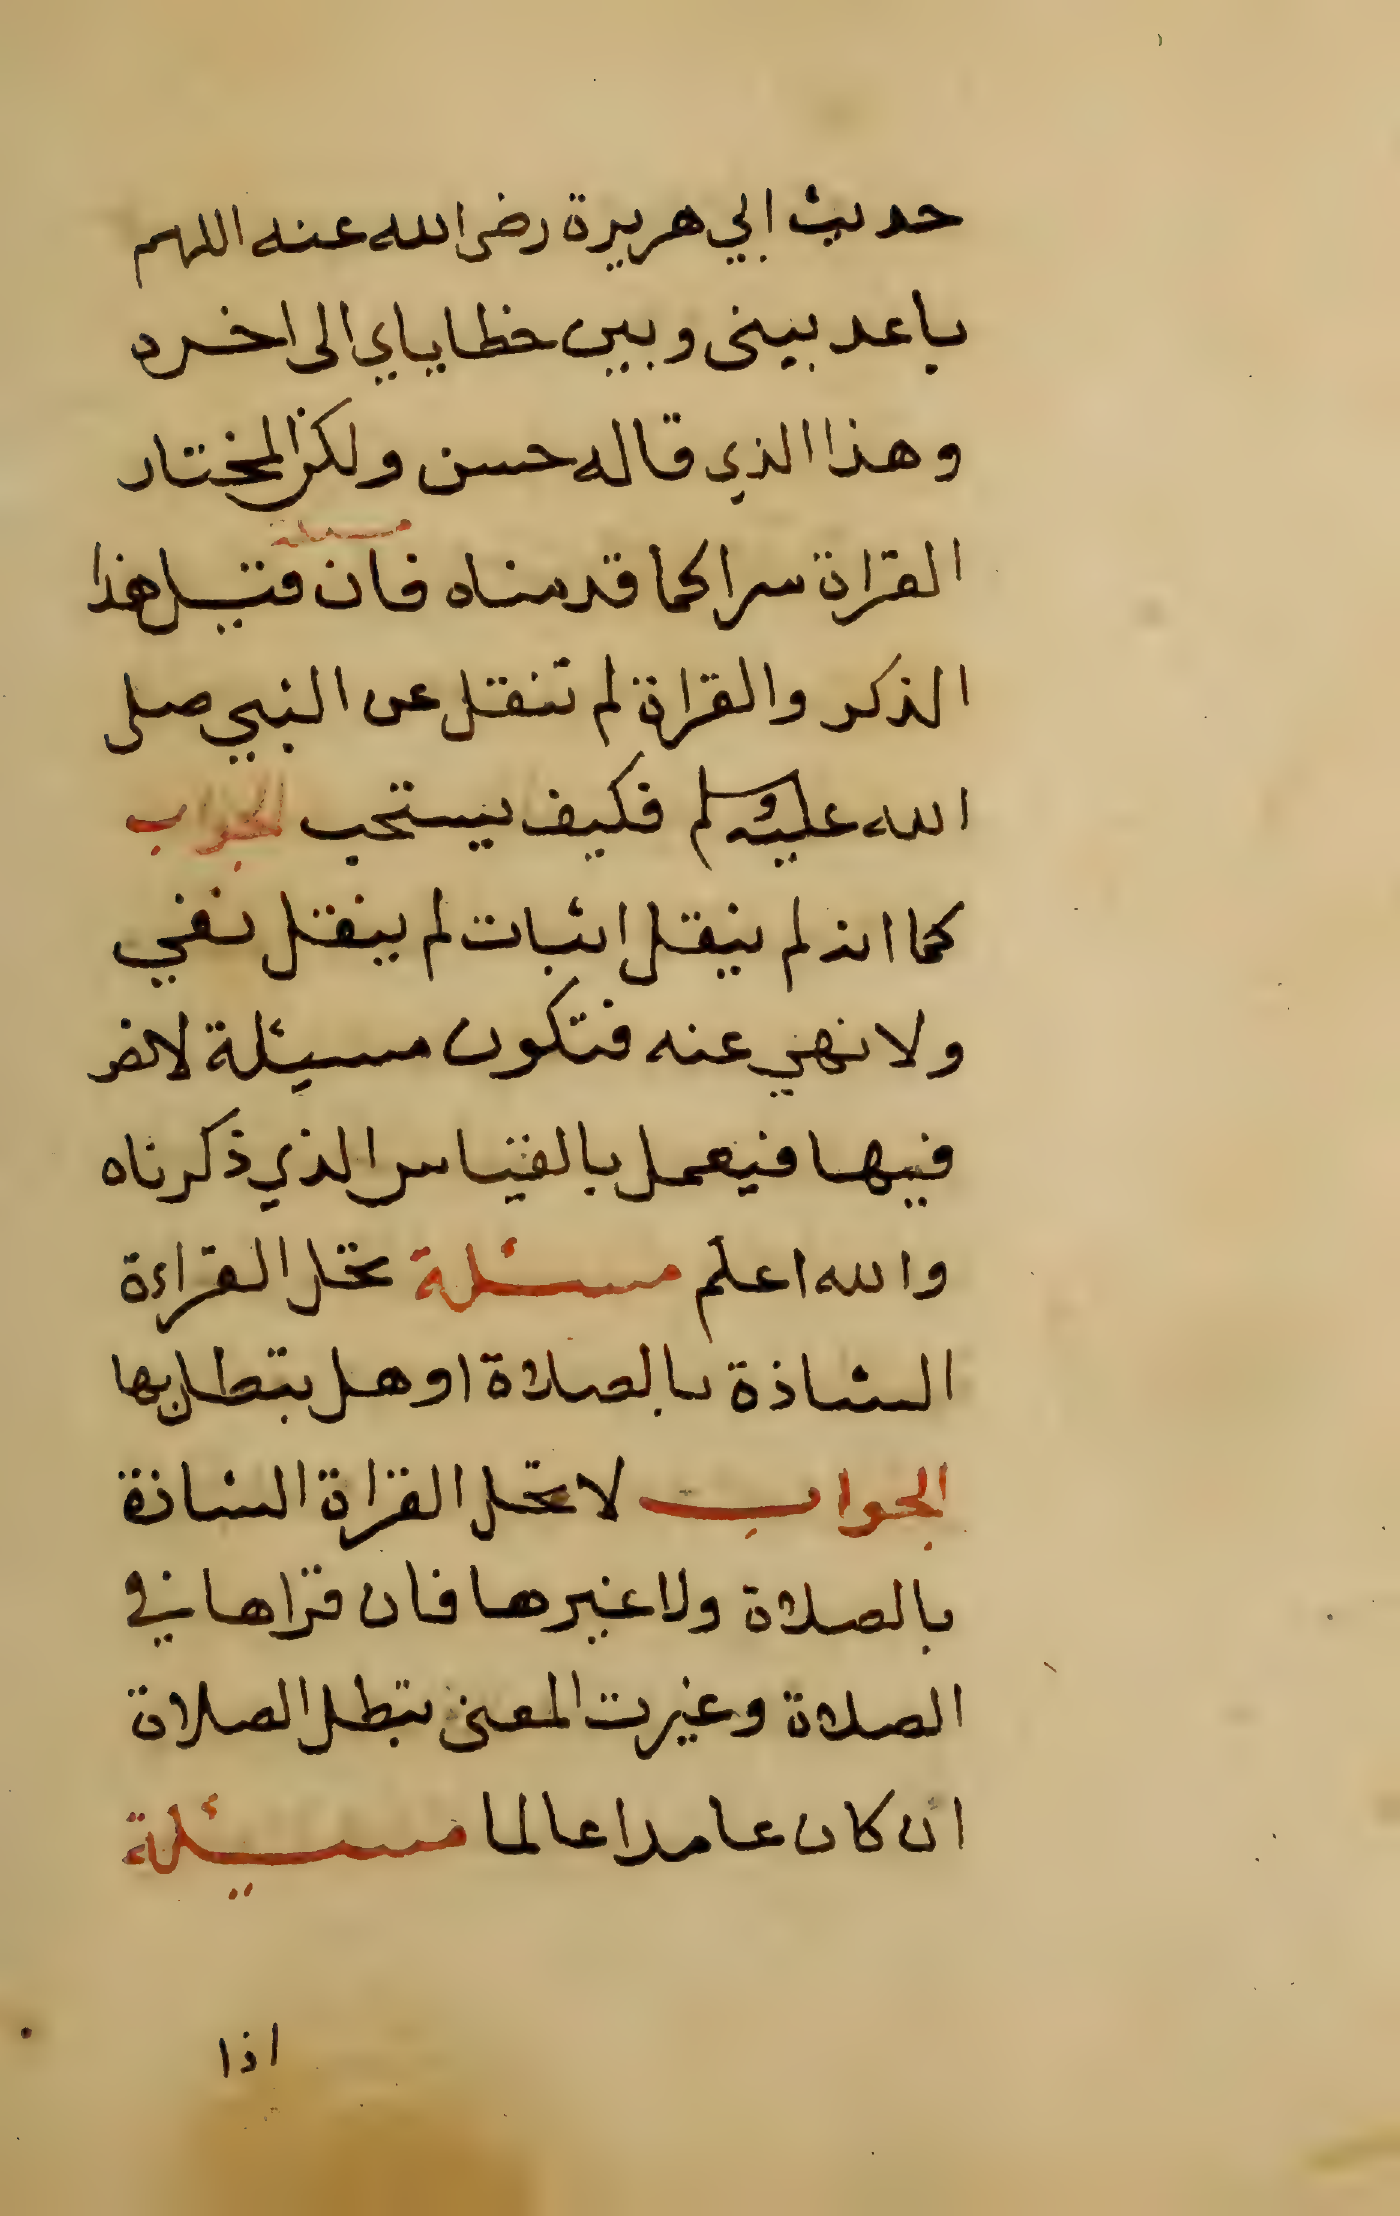 حديث ابي هريرة رضى الله عنه اللهم
باعد بينى وبين خطاياي الى اخره
وهذا الذي قاله حسن ولكن المختار
مسيلة
القراة سرا كما قدمناه فان قيل هذا
الذكر والقراة لم تنقل عن النبي صلى
الله عليه وسلم فكيف يستحب الجواب
كما انه لم ينقل اثبات لم ينقل نفي
ولا نهي عنه فتكون مسيئلة لانص
فيها فيعمل بالقياس الذي ذكرناه
والله اعلم مسئلة تحل القراءة
الشاذة بالصلاة او هل بتطل بها
الجواب لا تحل القراة الشاذة
بالصلاة ولا غيرها فان قراها في
الصلاة وغيرت المعنى بتطل الصلاة
ان كان عامدا عالما مسيئلة
اذا